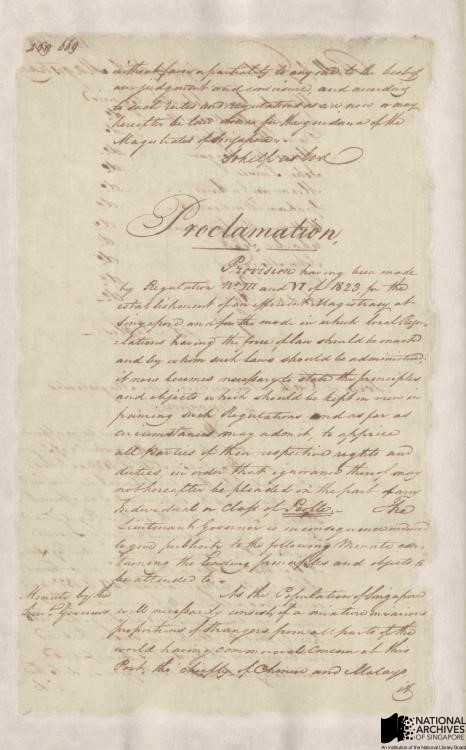 269 669
without favor or partiality to any one to the best of
our judgment and conscience, and according
to such rules and regulations as is now or may
hereafter be laid down for the guidance of the
Magistrates of Singapore.
So help us God
Proclamation,
Provision having been made
by Regulation No. III and VI of 1823 for the
establishment of an efficient Magistracy at
Singapore and for the mode in which local Regu-
lations having the force of law should be made
and by whom such laws should be administered,
it now becomes necessary to state the principles
and objects which should be kept in view in
framing such Regulations and as far as
circumstances may admit to apprize
all parties of their respective rights and
duties, in order that ignorance thereof may
not hereafter be pleaded on the part of any
Individual or Class of People. — The
Lieutenant Governor is in consequence induced
to give publicity to the following Minute con-
taining the leading principles and objects to
be attended to. —
Minute by the
Lieut. Governor
As the Population of Singapore
will necessarily consist of a mixture in various
proportions of strangers from all parts of the
world having commercial Concern at this
Port, the chiefly of Chinese and Malays
it
NATIONAL
ARCHIVES
OF SINGAPORE
An institution of the National Library Board